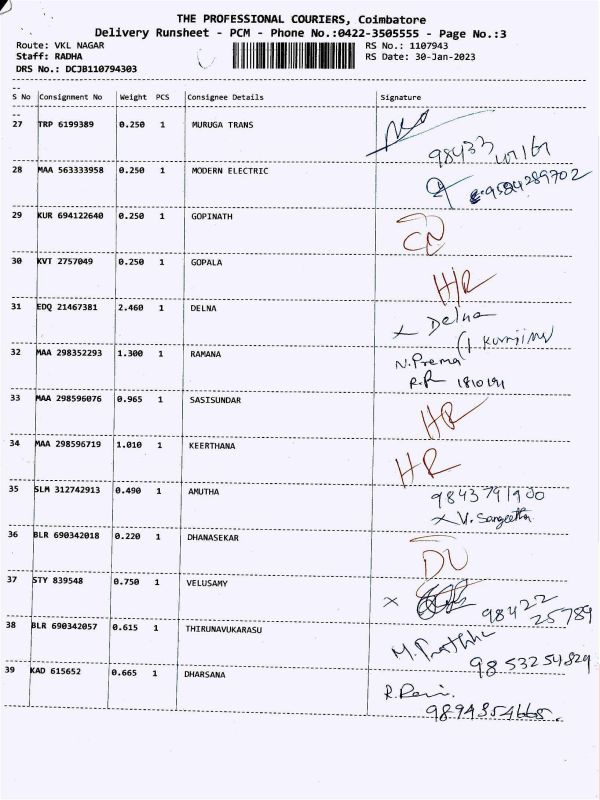 THE PROFESSIONAL COURIERS, Coimbatore
Delivery Runsheet - PCM - Phone No.:0422-3505555 - Page No.:3
Route: VKL NAGAR RS No.: 1107943
Staff: RADHA RS Date: 30-Jan-2023
DRS No.: DCJB110794303
S No Consignment No Weight PCS Consignee Details Signature
27 TRP 6199389 0.250 1 MURUGA TRANS
98433
28 MAA 563333958 0.250 1 MODERN ELECTRIC
9584289702
29 KUR 694122640 0.250 1 GOPINATH
CN
30 KVT 2757049 0.250 1 GOPALA
H/R
31 EDQ 21467381 2.460 1 DELNA
x Delna
32 MAA 298352293 1.300 1 RAMANA
N.Prema
R.R
33 MAA 298596076 0.965 1 SASISUNDAR
HR
34 MAA 298596719 1.010 1 KEERTHANA
HR
35 SLM 312742913 0.490 1 AMUTHA
9843791900
x V. Sangeetha
36 BLR 690342018 0.220 1 DHANASEKAR
DU
37 STY 839548 0.750 1 VELUSAMY
x 98422
25789
38 BLR 690342057 0.615 1 THIRUNAVUKARASU
M.
9853254829
39 KAD 615652 0.665 1 DHARSANA
R.